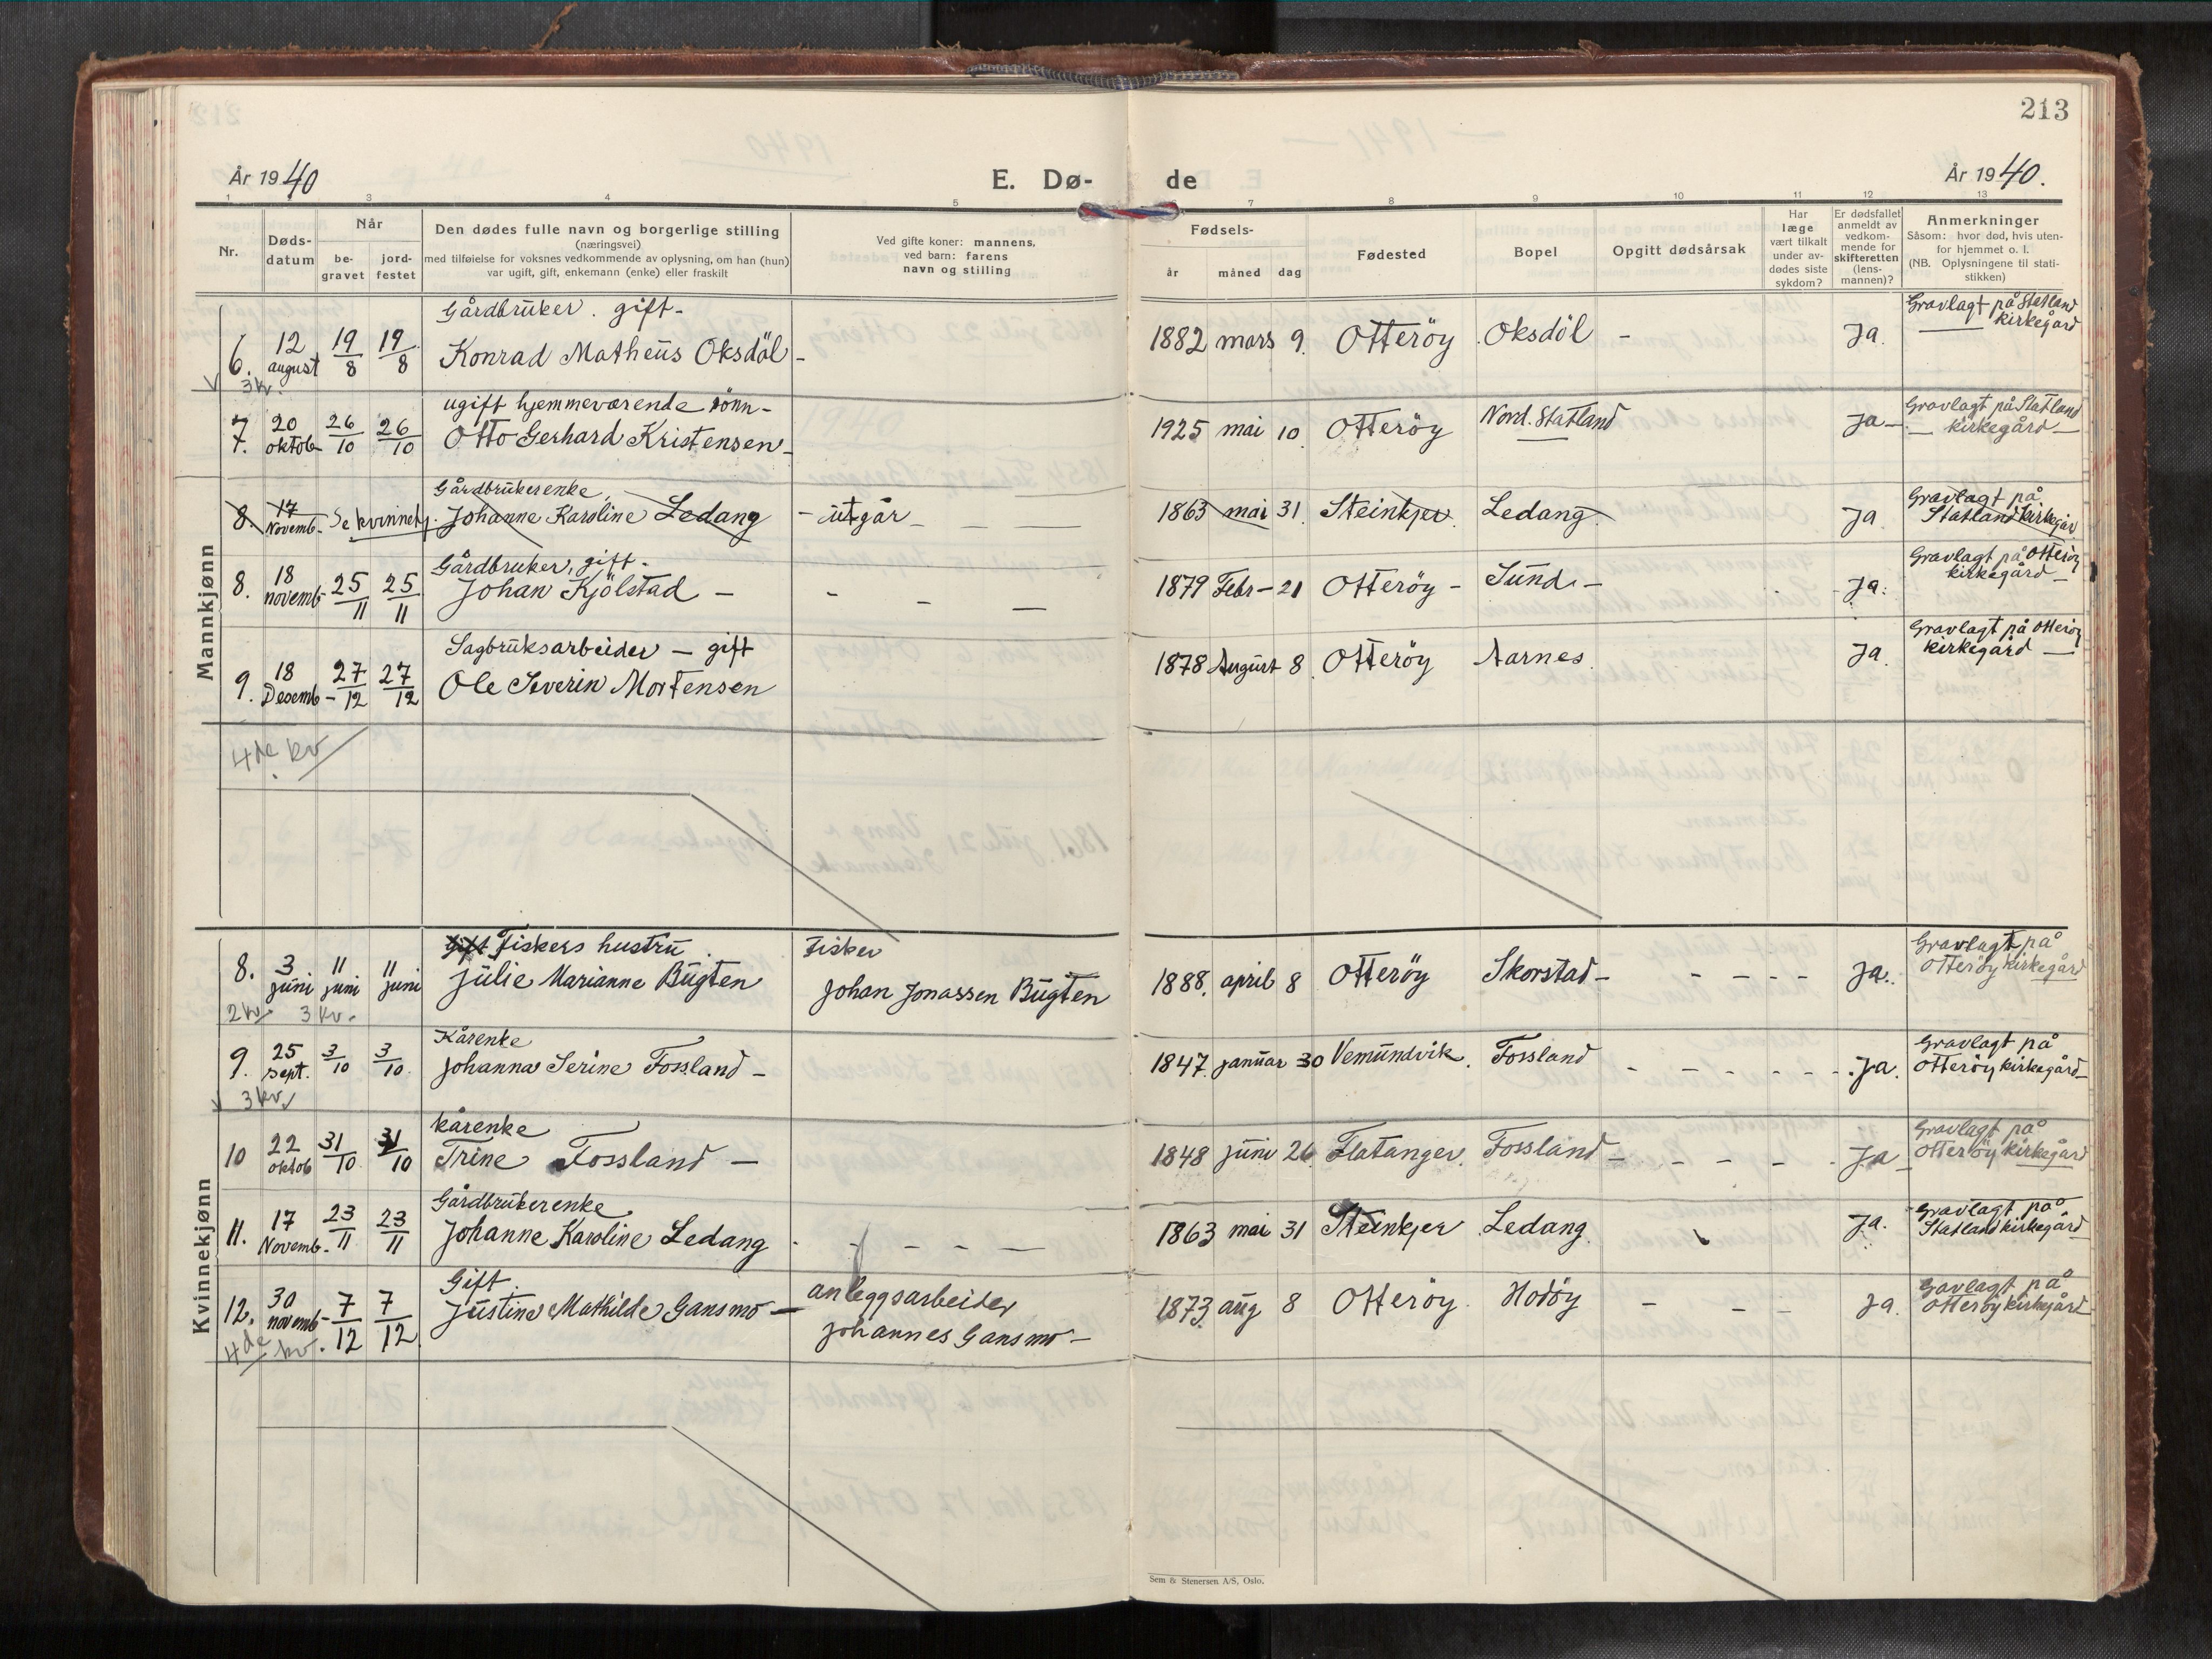 213
År 1940
E. Dø-
de
År 1940.
1 2 3 4 5 7 8 9 10 11 12 13
Nr.
Døds-
datum
Når
be-
gravet
jord-
festet
Den dødes fulle navn og borgerlige stilling
(næringsvei)
med tilføielse for voksnes vedkommende av oplysning, om han (hun)
var ugift, gift, enkemann (enke) eller fraskilt
Ved gifte koner: mannens,
ved barn: farens
navn og stilling
Fødsels-
år måned dag
Fødested
Bopel
Opgitt dødsårsak
Har
læge
vært tilkalt
under av-
dødes siste
sykdom?
Er dødsfallet
anmeldt av
vedkom-
mende for
skifteretten
(lens-
mannen)?
Anmerkninger
Såsom: hvor død, hvis uten-
for hjemmet o. l.
(NB. Oplysningene til stati-
stikken)
Mannkjønn
Gårdbruker. gift-
6. 12 august 19/8 19/8 Konrad Matheus Oksdöl - 1882 mars 9. Otteröy Oksdöl - Ja. Gravlagt på Statland
kirkegård
3 kv.
ugift hjemmeværende sönn-
7. 20 oktob- 26/10 26/10 Otto Gerhard Kristensen- 1925 mai 10 Otteröy Nord. Statland Ja- Gravlagt på Statland
kirkegård-
Gårdbrukerenke,
8. 17 Novemb- Se kvinnekj. Johanne Karoline Ledang - utgår - 1863 mai 31. Steinkjer Ledang Ja Gravlagt på
Statland kirkegår
Gårdbruker, gift-
8. 18 novemb- 25/11 25/11 Johan Kjölstad - 1879 Febr- 21 Otteröy - Sund - Ja. Gravlagt på Otteröy
kirkegård-
Sagbruksarbeider - gift
9. 18 Desemb- 27/12 27/12 Ole Severin Mortensen 1878 August 8. Otteröy Aarnes Ja. Gravlagt på Otteröy
kirkegård-
4de kv
Kvinnekjønn
Gift Fiskers hustru. Fisker
8. 3 juni 11 juni 11 juni Julie Marianne Bugten Johan Jonassen Bugten 1888. april 8 Otteröy Skorstad- - - - - Ja. Gravlagt på
Otteröy kirkegård
2 kv. 3 kv.
Kårenke
9. 25 sept. 3/10 3/10 Johanna Serine Fossland - 1847. januar 30 Vemundvik. Fossland - - - - - Ja. Gravlagt på
Otteröy kirkegård-
3 kv.
kårenke
10 22 oktob 31/10 31/10 Trine Fossland - 1848 juni 26. Flatanger. Fossland - - - - - Ja- Gravlagt på
Otteröy kirkegård
Gårdbrukerenke
11. 17 Novemb- 23/11 23/11 Johanne Karoline Ledang - - - - 1863 mai 31 Steinkjer Ledang. Ja. Gravlagt på
Statland kirkegård
Gift. anleggsarbeider
12. 30 novemb- 7/12 7/12 Justine Mathilde Gansmo - Johannes Gansmo - 1873. aug 8 Otteröy. Hodöy - - - Ja. Gravlagt på
Otteröy kirkegård
4de kv.
Sem & Stenersen A/S, Oslo.